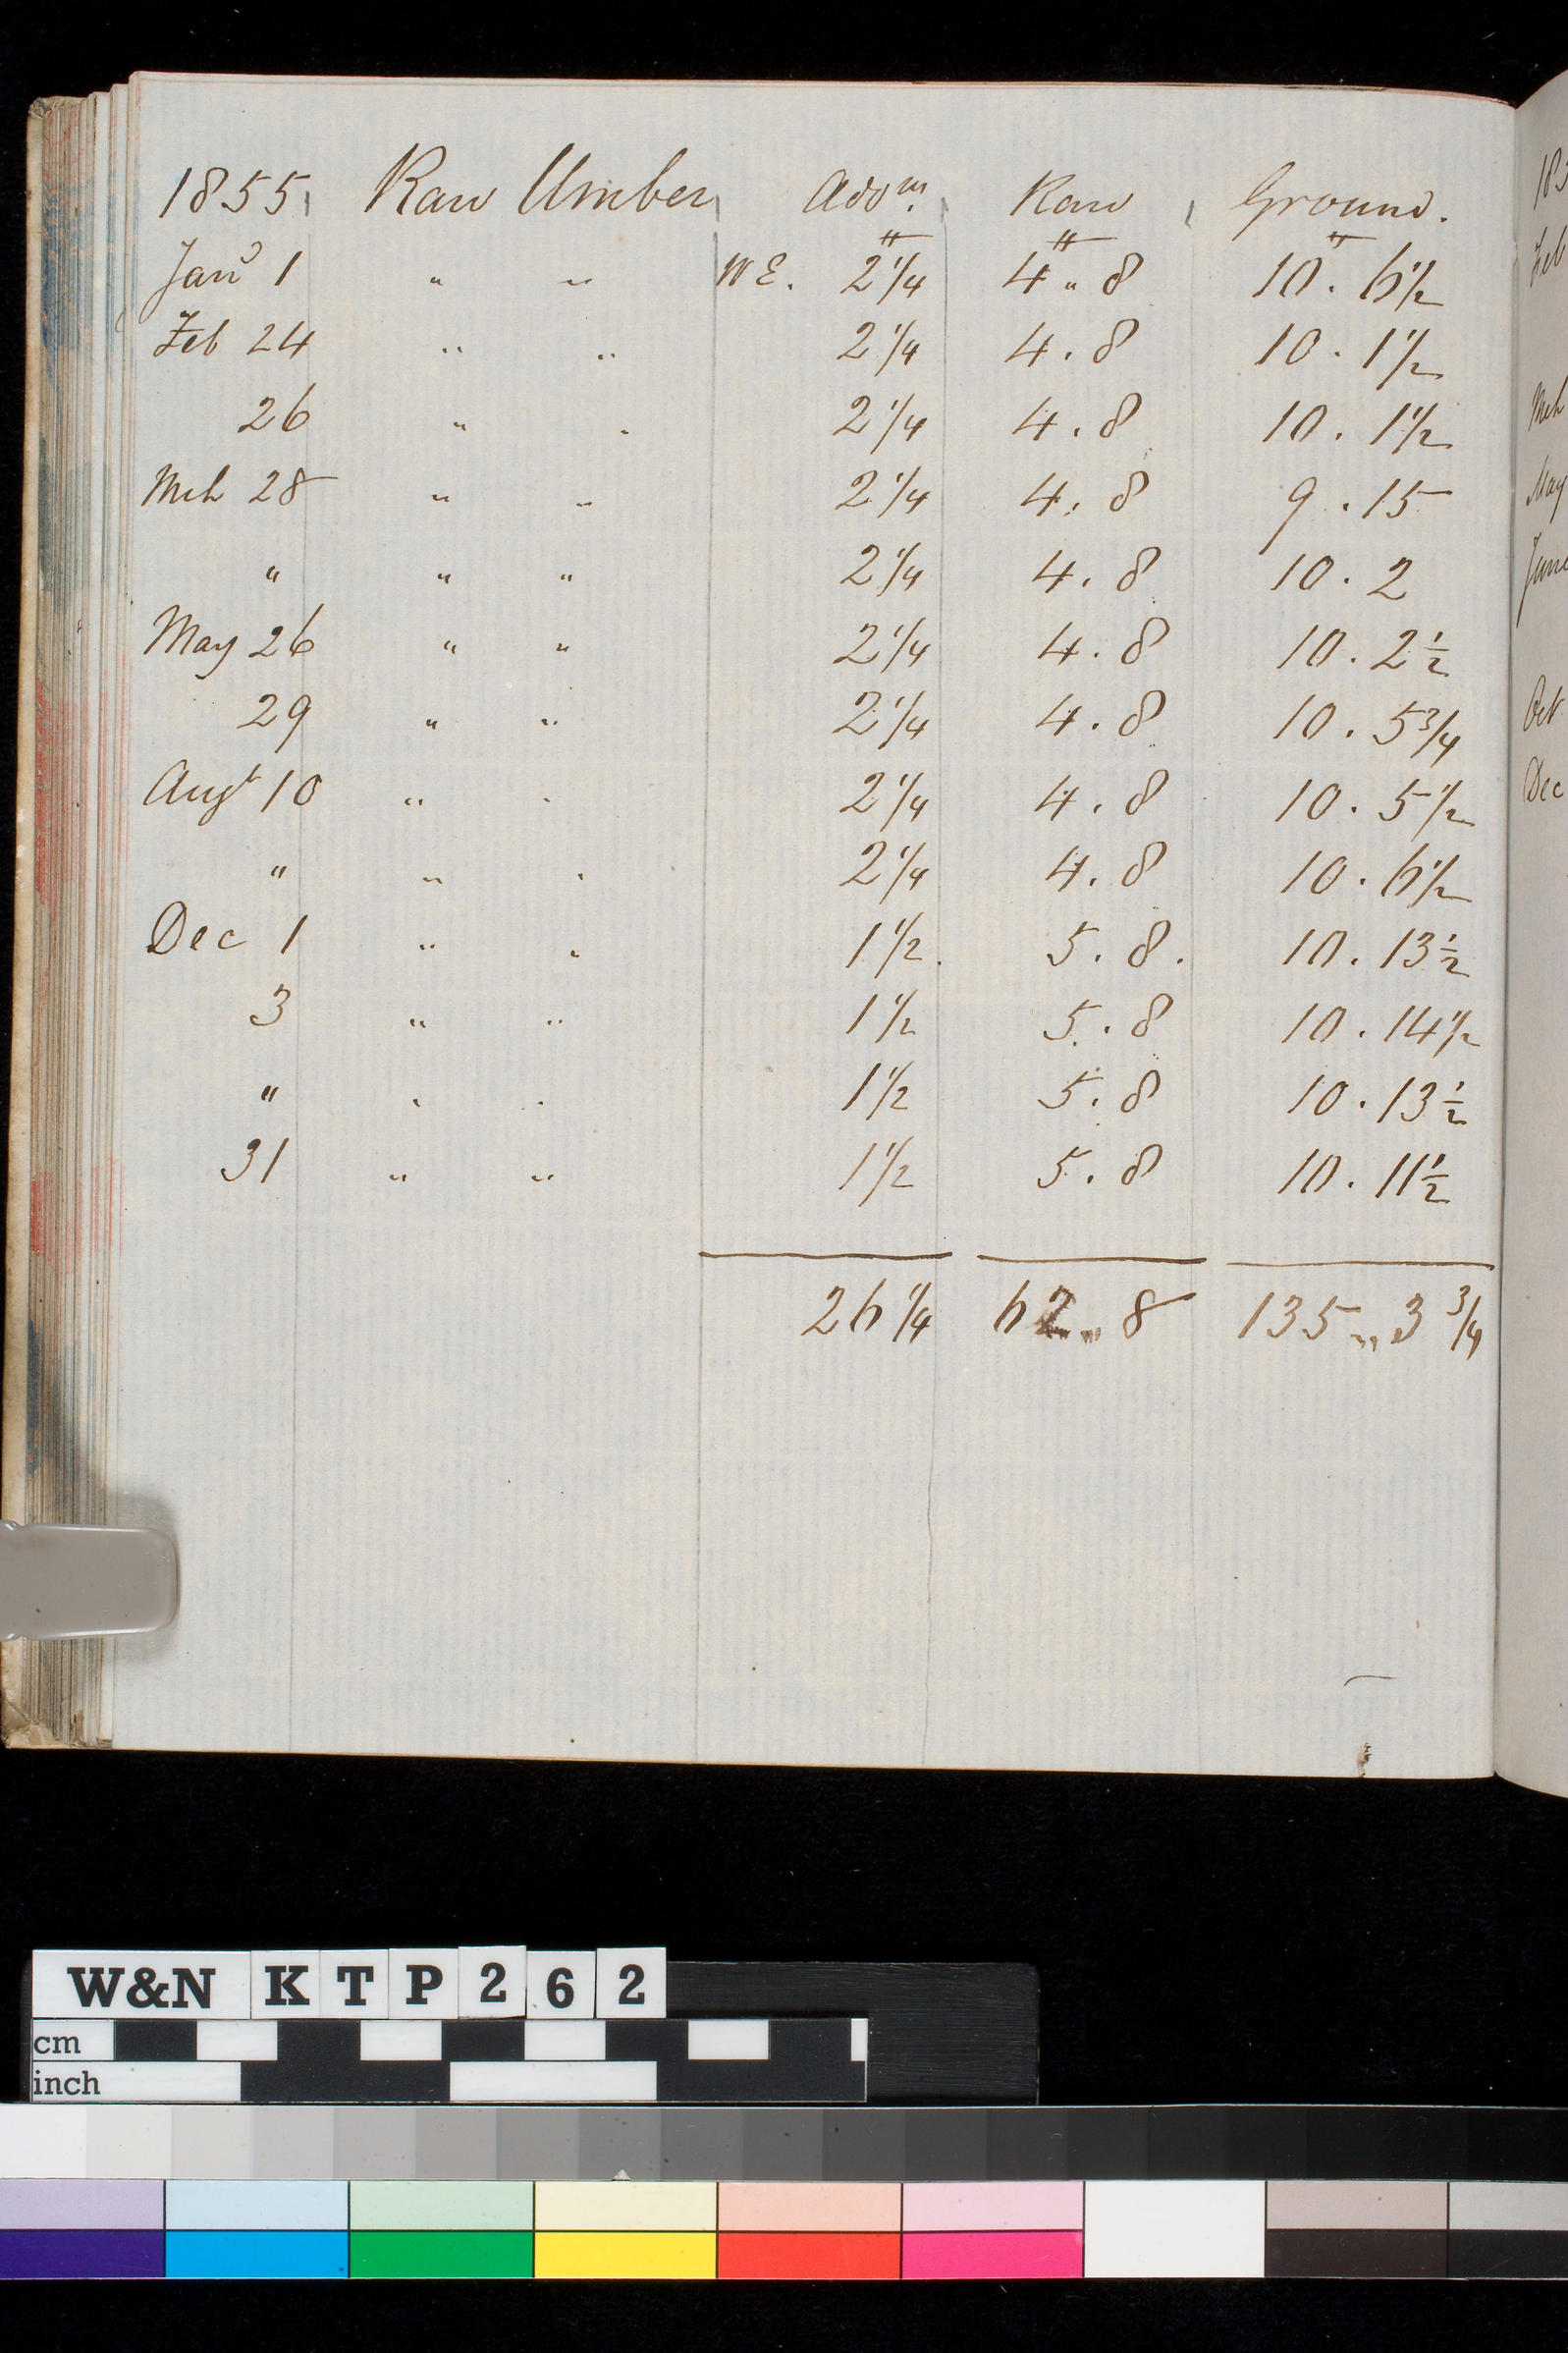 1855 Raw Umber Addn. Raw Ground.
Jany 1 " " WE. 2 1/4 4 " 8 10 . 6 1/2
Feb 24 " " 2 1/4 4 . 8 10 . 1 1/2
26 " " 2 1/4 4 . 8 10 . 1 1/2
Mch 28 " " 2 1/4 4 . 8 9 . 15
" " " 2 1/4 4 . 8 10 . 2
May 26 " " 2 1/4 4 . 8 10 . 2 1/2
29 " " 2 1/4 4 . 8 10 . 5 3/4
Augt 10 " " 2 1/4 4 . 8 10 . 5 1/2
" " " 2 1/4 4 . 8 10 . 6 1/2
Dec 1 " " 1 1/2 . 5 . 8 . 10 . 13 1/2
3 " " 1 1/2 5 . 8 10 . 14 1/2
" " " 1 1/2 5 . 8 10 . 13 1/2
31 " " 1 1/2 5 . 8 10 . 11 1/2
26 1/4 62 " 8 135 " 3 3/4
Feb
Mch
May
June
Oct
Dec
W&N KTP262
cm
inch